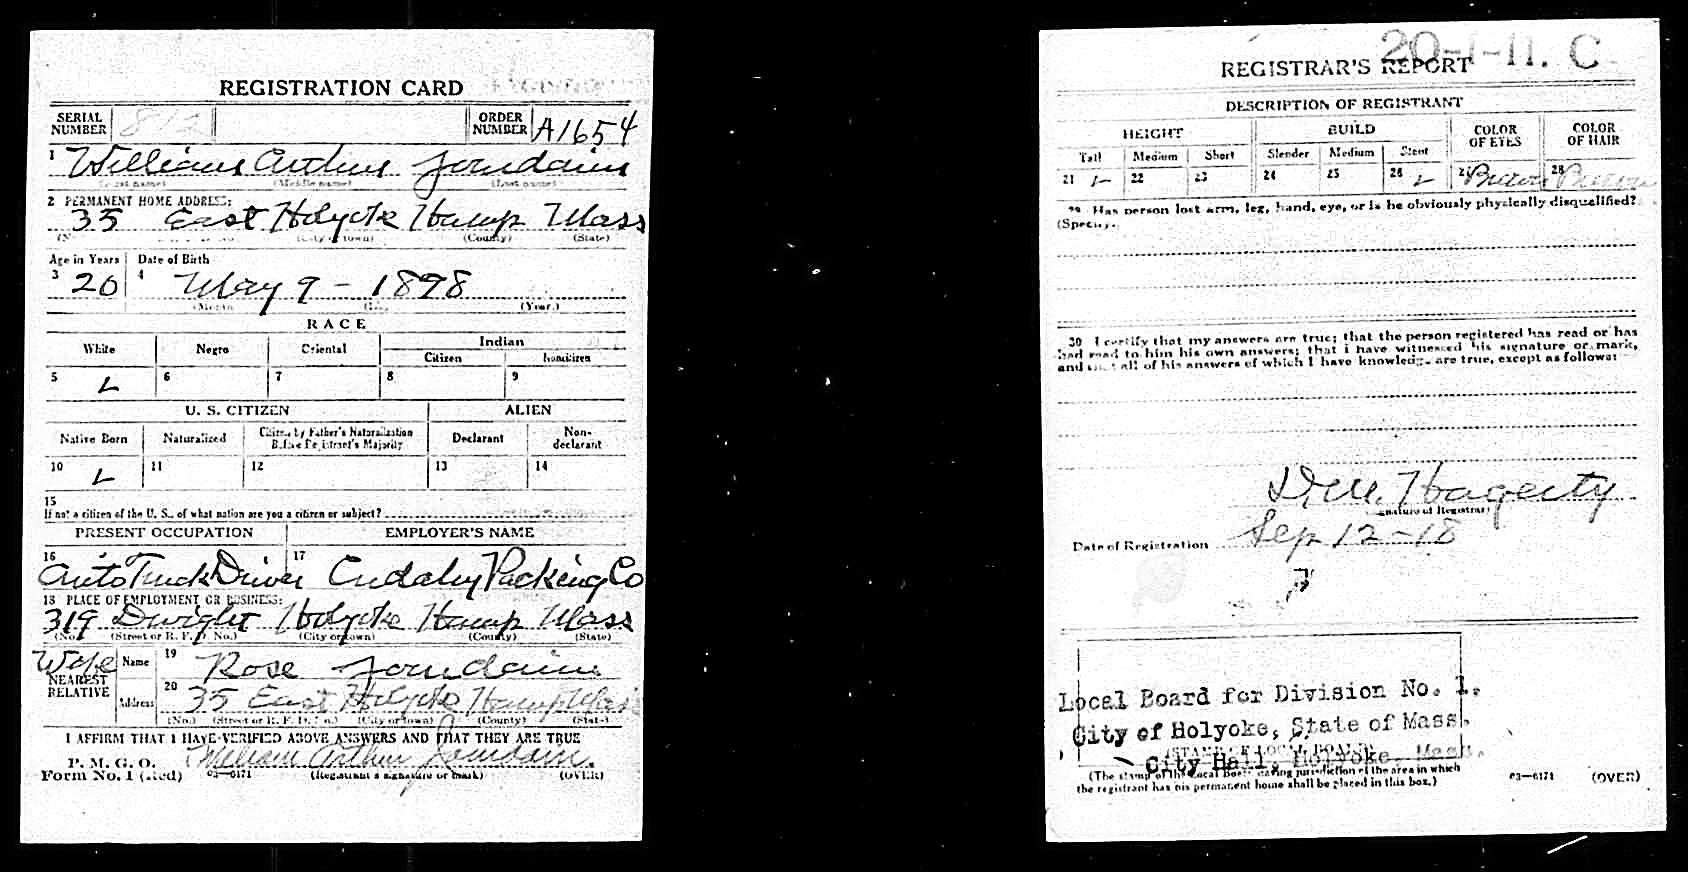 REGISTRATION CARD
SERIAL NUMBER 812 ORDER NUMBER A1654
1 William Arthur Jourdain
(First name) (Middle name) (Last name)
2 PERMANENT HOME ADDRESS:
35 East Holyoke Hamp Mass
(City or town) (County) (State)
Age in Years Date of Birth
3 20 4 May 9 - 1898
(Month) (Day) (Year.)
RACE
White Negro Oriental Indian
Citizen Noncitizen
5 6 7 8 9
U. S. CITIZEN ALIEN
Native Born Naturalized Citizen by Father's Naturalization Before Registrant's Majority Declarant Non-declarant
10 11 12 13 14
15
If not a citizen of the U. S., of what nation are you a citizen or subject?
PRESENT OCCUPATION EMPLOYER'S NAME
16 Auto Truck Driver 17 Cudahy Packing Co
18 PLACE OF EMPLOYMENT OR BUSINESS:
319 Dwight Holyoke Hamp Mass
(No.) (Street or R. F. D. No.) (City or town) (County) (State)
Wife
NEAREST RELATIVE
Name 19 Rose Jourdain
Address 20 35 East Holyoke Hamp Mass
(No.) (Street or R. F. D. No.) (City or town) (County) (State)
I AFFIRM THAT I HAVE VERIFIED ABOVE ANSWERS AND THAT THEY ARE TRUE
P. M. G. O.
Form No. 1 (Red) 03—6171 William Arthur Jourdain.
(Registrant's signature or mark) (OVER)
20-1-11. C
REGISTRAR'S REPORT
DESCRIPTION OF REGISTRANT
HEIGHT BUILD COLOR OF EYES COLOR OF HAIR
Tall Medium Short Slender Medium Stout
21 22 23 24 25 26 27 Brown 28 Brown
29 Has person lost arm, leg, hand, eye, or is he obviously physically disqualified?
(Specify.)
30 I certify that my answers are true; that the person registered has read or has
had read to him his own answers; that I have witnessed his signature or mark,
and that all of his answers of which I have knowledge are true, except as follows:
Hagerty
(Signature of Registrar)
Date of Registration Sep 12-18
Local Board for Division No. 1.
City of Holyoke, State of Mass.
(STAMP OF LOCAL BOARD)
City Hall, Holyoke, Mass.
(The stamp of the Local Board having jurisdiction of the area in which
the registrant has his permanent home shall be placed in this box.)
03—6171 (OVER)